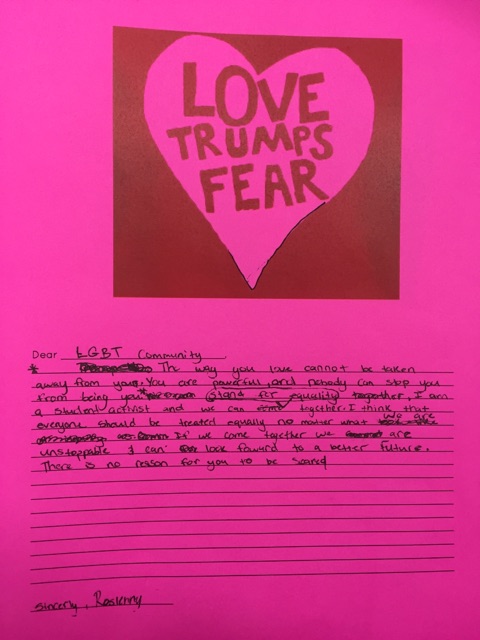 LOVE
TRUMPS
FEAR
Dear LGBT Community
* The way you love cannot be taken
away from you. You are powerful, and nobody can stop you
from being you. stand for equality together, I am
a student activist and we can together. I think that
everyone should be treated equally no matter what we are
If we come together we are
unstoppable & can look foward to a better future.
There is no reason for you to be scared
sincerly, Roslenny